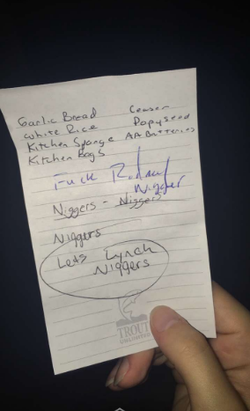 Garlic Bread
White Rice Popyseed
Kitchen Sponge AA Batteries
Kitchen Bags
Fuck
Nigger
Niggers - Niggers
Niggers
Lets Lynch
Niggers
TROUT